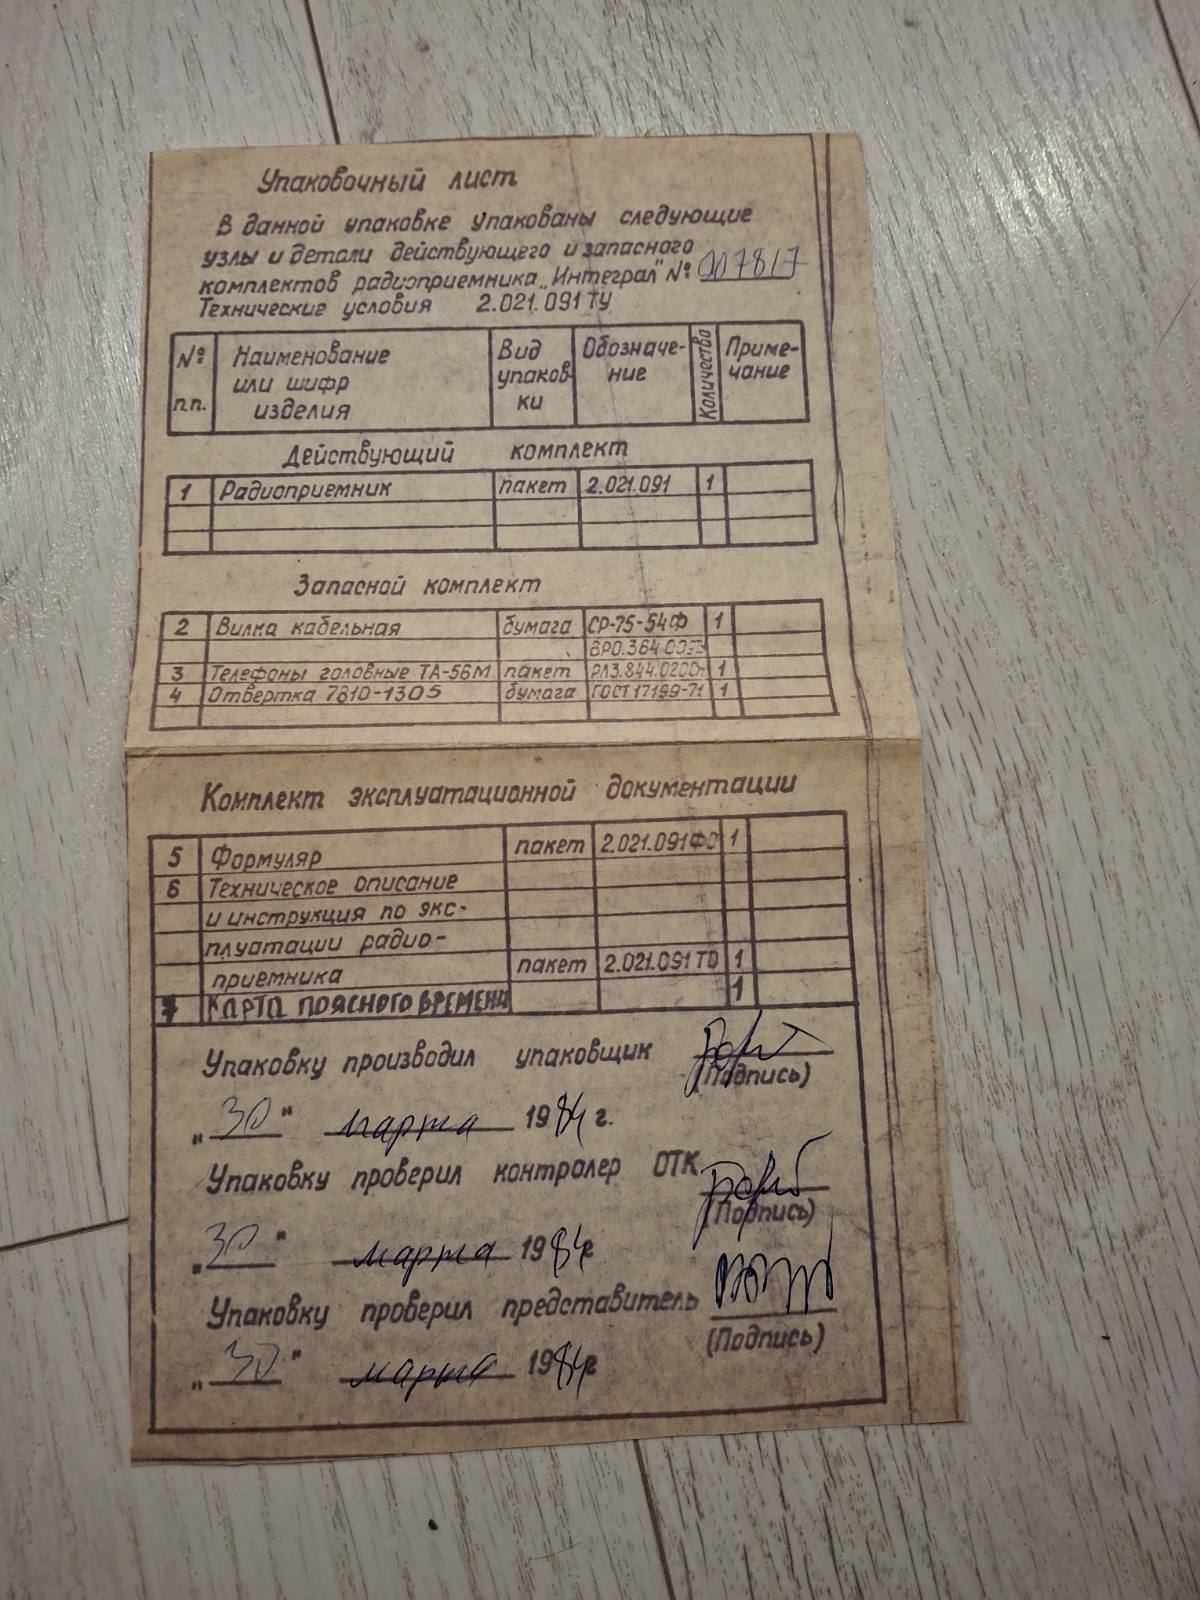 Упаковочный лист
В данной упаковке упакованы следующие
узлы и детали действующего и запасного
комплектов радиоприемника „Интеграл" № 007817
Технические условия 2.021.091 ТУ
№ п.п. Наименование или шифр изделия Вид упаков- ки Обозначе- ние Количество Приме- чание
Действующий комплект
1 Радиоприемник пакет 2.021.091 1
Запасной комплект
2 Вилка кабельная бумага СР-75-54Ф 1
ВРО.364.
3 Телефоны головные ТА-56М пакет РЛ3.844. 1
4 Отвертка 7810-1305 бумага ГОСТ 17199-71 1
Комплект эксплуатационной документации
5 Формуляр пакет 2.021.091ФО 1
6 Техническое описание
и инструкция по экс-
плуатации радио-
приемника пакет 2.021.091 ТО 1
7 КАРТА ПОЯСНОГО ВРЕМЕНИ 1
Упаковку производил упаковщик
(Подпись)
„30" марта 1984 г.
Упаковку проверил контролер ОТК
(Подпись)
„30" марта 1984г
Упаковку проверил представитель
(Подпись)
„30" марта 1984г